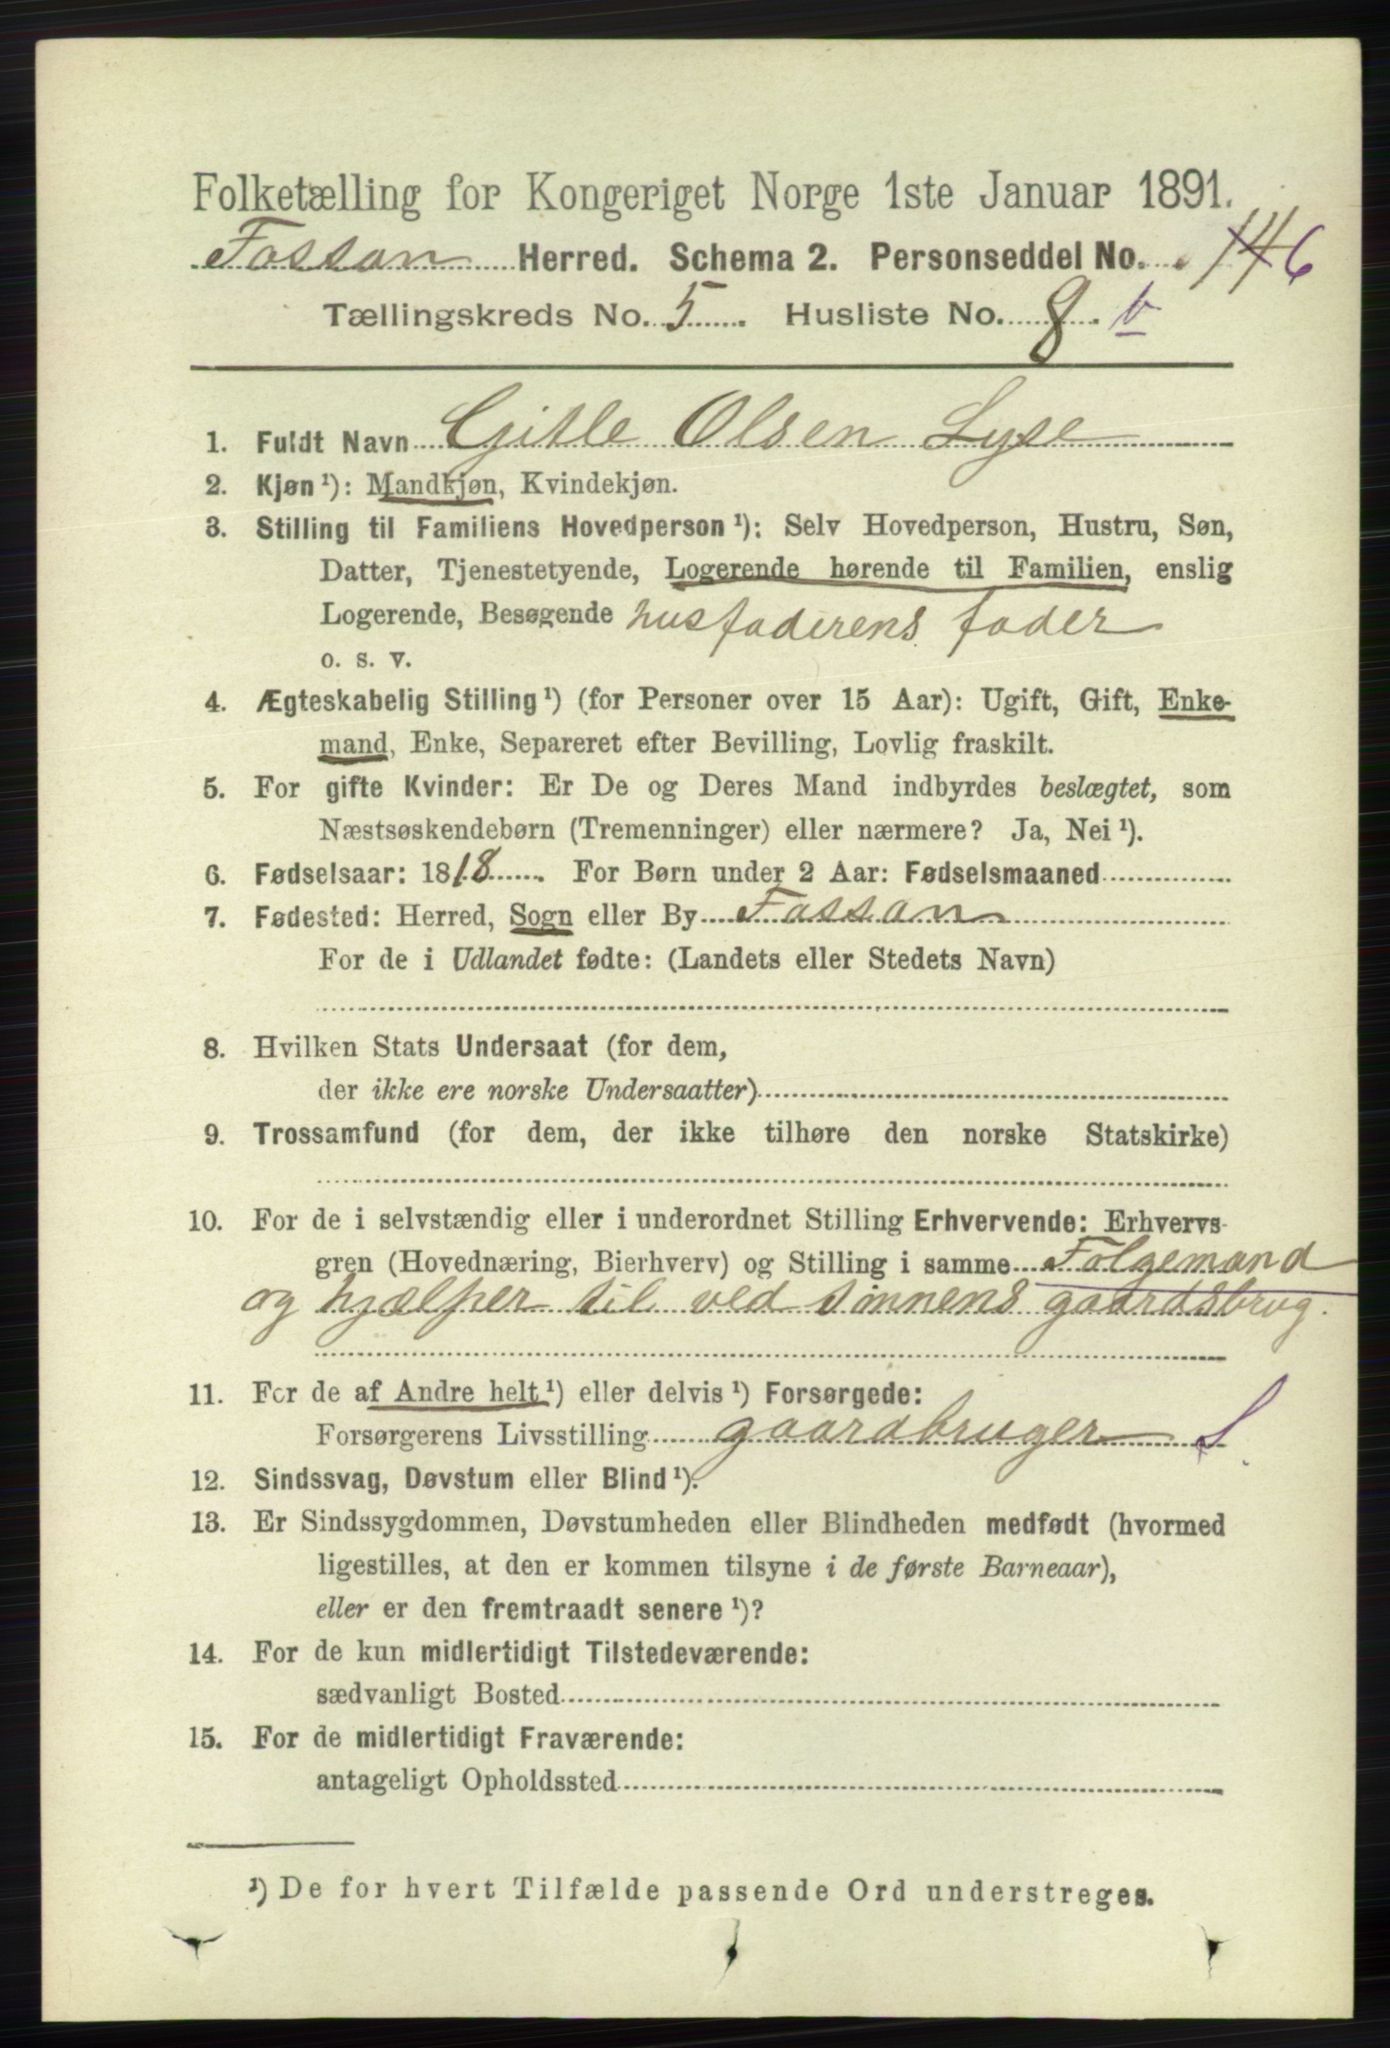 Folketælling for Kongeriget Norge 1ste Januar 1891.
Fossan Herred. Schema 2. Personseddel No. 146
Tællingskreds No. 5 Husliste No. 8 b
1. Fuldt Navn Gitle Olsen Lyse
2. Kjøn ¹): Mandkjøn, Kvindekjøn.
3. Stilling til Familiens Hovedperson ¹): Selv Hovedperson, Hustru, Søn,
Datter, Tjenestetyende, Logerende hørende til Familien, enslig
Logerende, Besøgende husfaderens fader
o. s. v.
4. Ægteskabelig Stilling ¹) (for Personer over 15 Aar): Ugift, Gift, Enke-
mand, Enke, Separeret efter Bevilling, Lovlig fraskilt.
5. For gifte Kvinder: Er De og Deres Mand indbyrdes beslægtet, som
Næstsøskendebørn (Tremenninger) eller nærmere? Ja, Nei ¹).
6. Fødselsaar: 1818. For Børn under 2 Aar: Fødselsmaaned
7. Fødested: Herred, Sogn eller By Fossan
For de i Udlandet fødte: (Landets eller Stedets Navn)
8. Hvilken Stats Undersaat (for dem,
der ikke ere norske Undersaatter)
9. Trossamfund (for dem, der ikke tilhøre den norske Statskirke)
10. For de i selvstændig eller i underordnet Stilling Erhvervende: Erhvervs-
gren (Hovednæring, Bierhverv) og Stilling i samme Følgemand
og hjælper til ved sønnens gaardsbrug.
11. For de af Andre helt ¹) eller delvis ¹) Forsørgede:
Forsørgerens Livsstilling gaardbruger S
12. Sindssvag, Døvstum eller Blind ¹).
13. Er Sindssygdommen, Døvstumheden eller Blindheden medfødt (hvormed
ligestilles, at den er kommen tilsyne i de første Barneaar),
eller er den fremtraadt senere ¹)?
14. For de kun midlertidigt Tilstedeværende:
sædvanligt Bosted
15. For de midlertidigt Fraværende:
antageligt Opholdssted
¹) De for hvert Tilfælde passende Ord understreges.